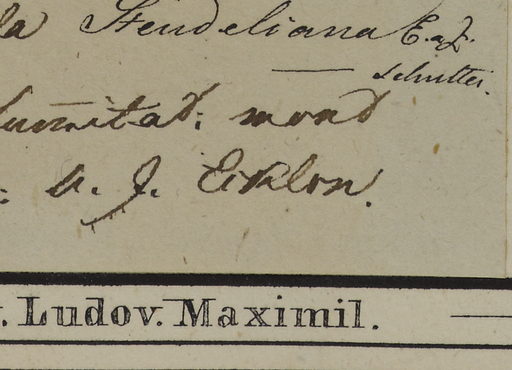 la Steudeliana E. a Z.
Schultes.
Summitat: mont
. D. J. Ecklon.
. Ludov. Maximil.